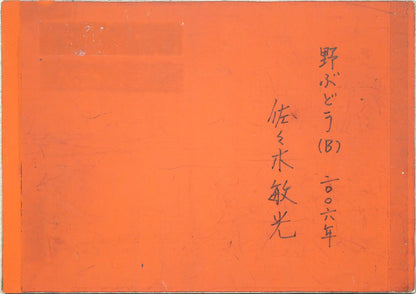 野ぶどう(B) 二〇〇六年
佐々木敏光